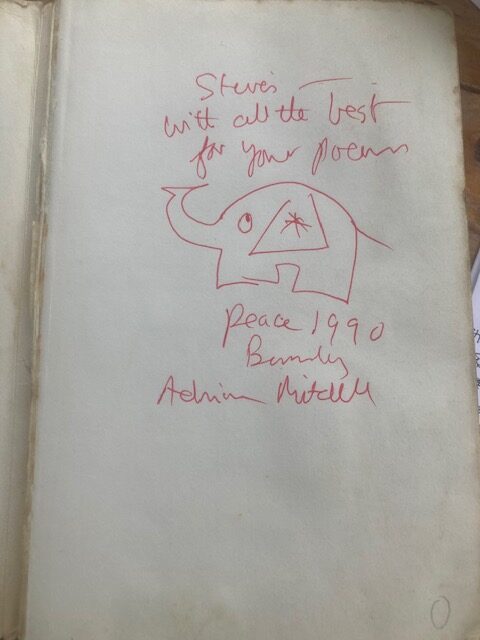 with all the best
for your poems
Peace 1990
Adrian Mitchell
0